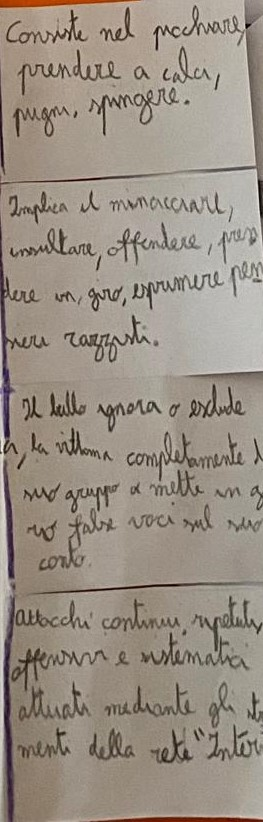 Consiste nel picchiare,
prendere a calci,
pugni, spingere.
Implica il minacciare,
insultare, offendere, pren
dere in giro, esprimere pen
sieri razzisti.
Il bullo ignora o esclude
la vittima completamente
suo gruppo o mette in g
ro false voci sul suo
conto.
attacchi continui, ripetuti,
offensivi e sistematici
attuati mediante gli st
menti della rete "Inter